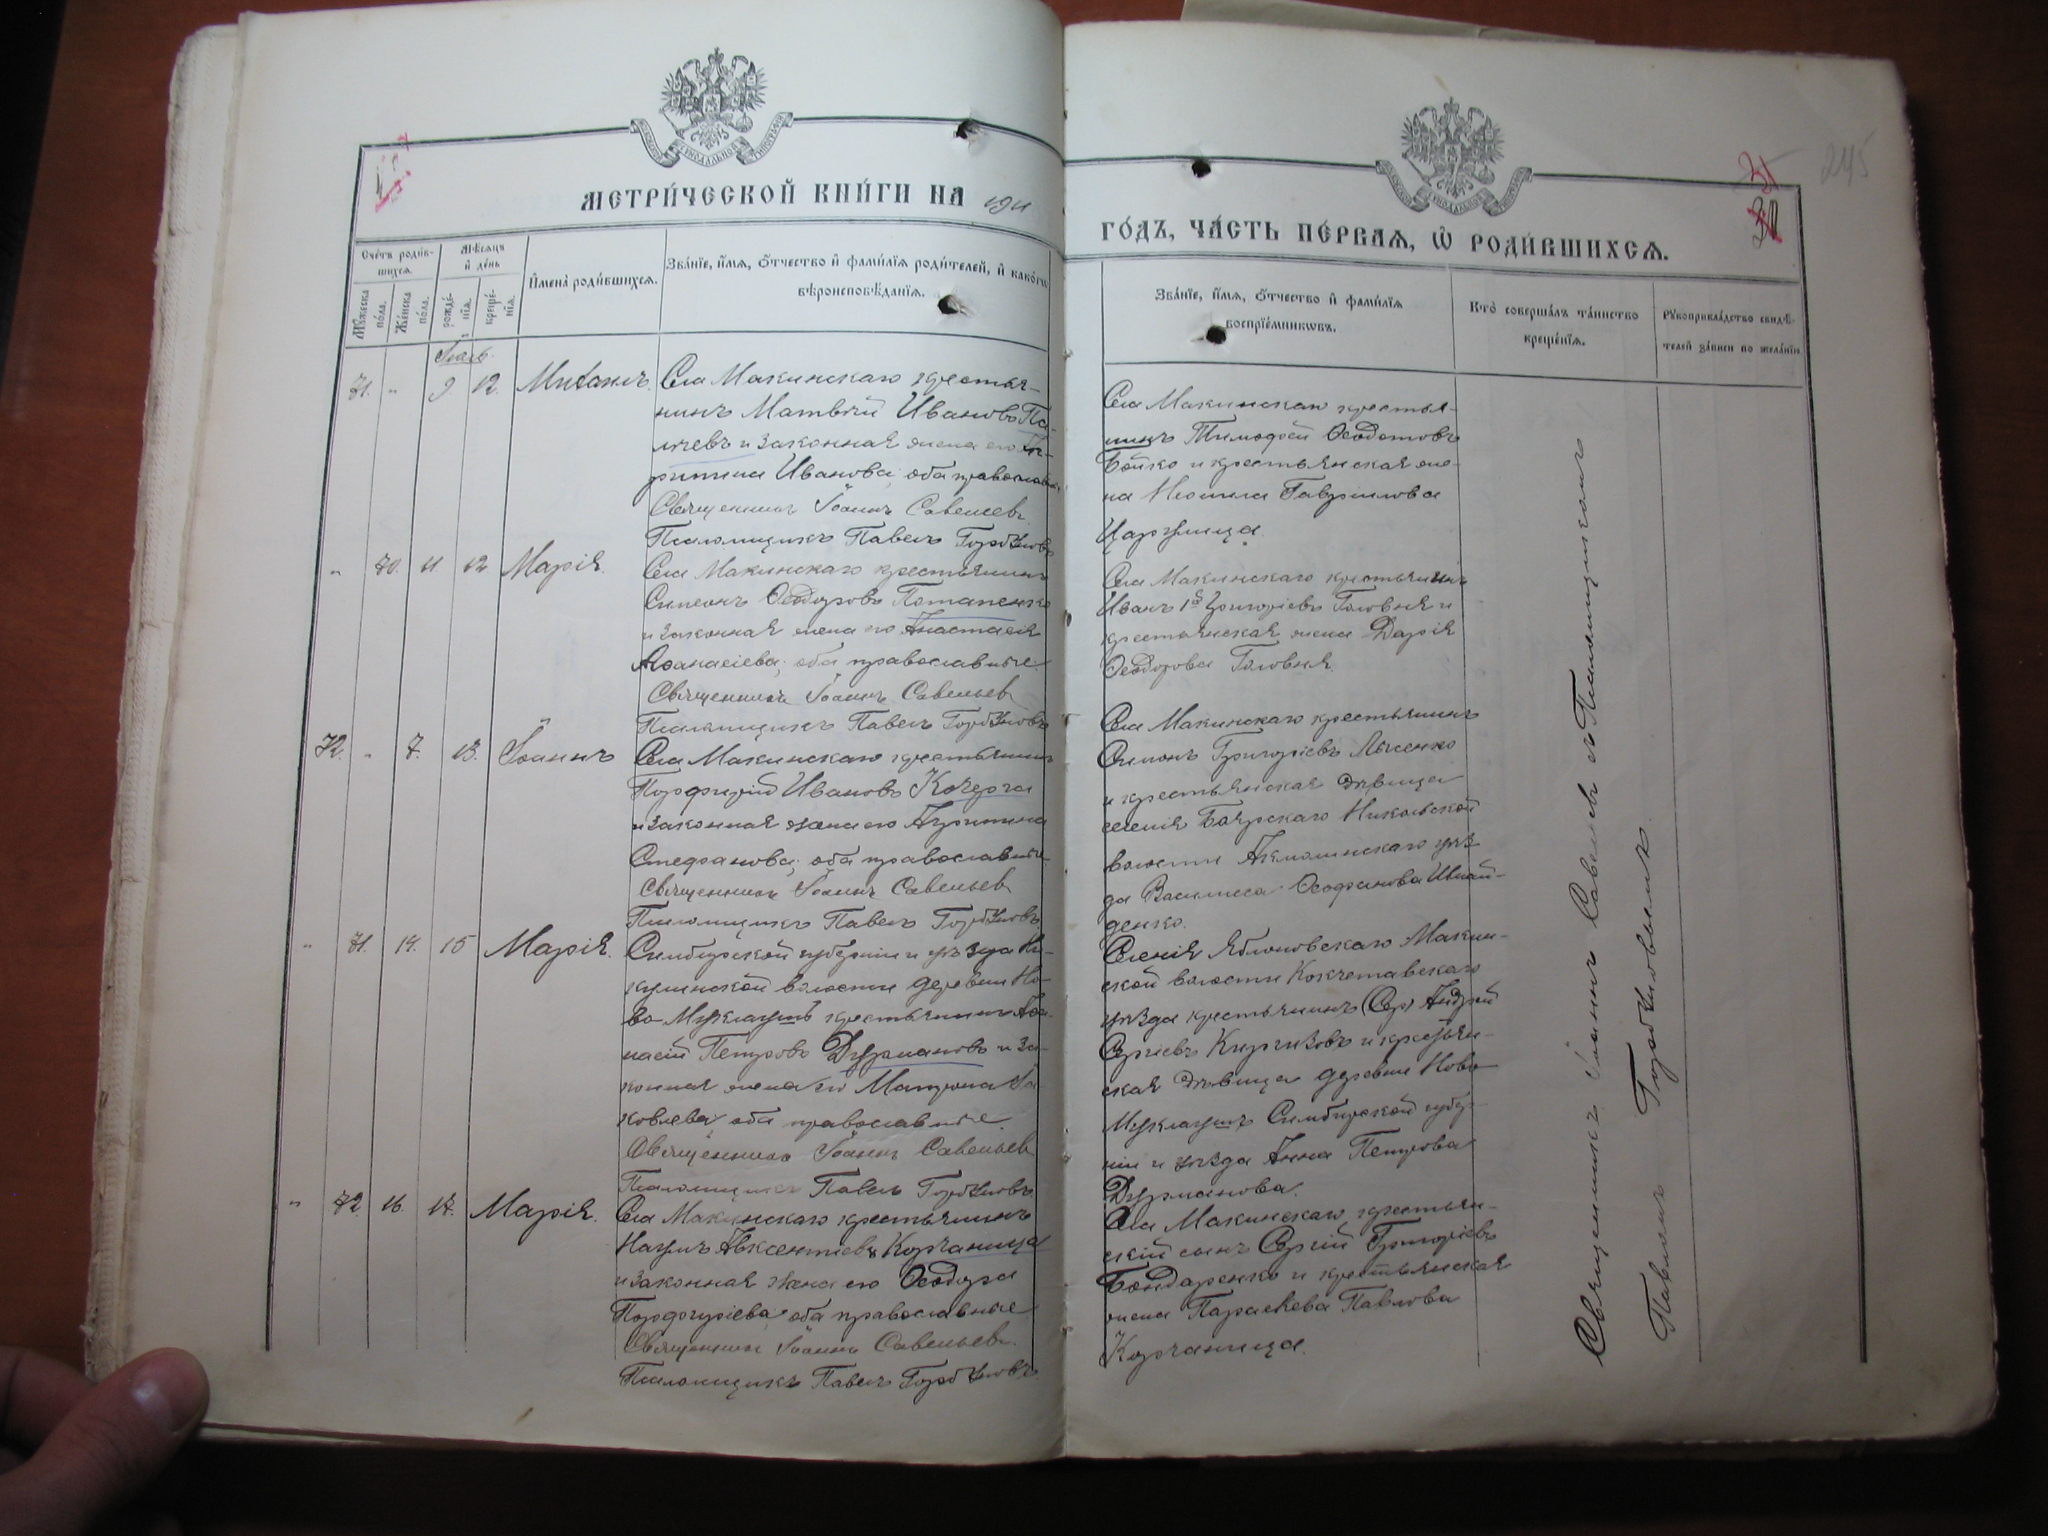 МЕТРИ́ЧЕСКОЙ КНИ́ГИ НА 1911
ГО́ДЪ, ЧА́СТЬ ПЕ́РВАЯ, Ѡ РОДИ́ВШИХСЯ.
245
Сче́тъ роди́в-
шихся.
Мѣ́сяцъ
и де́нь
Мꙋ́жеска
по́ла.
Же́нска
по́ла.
рожде́-
нїя.
креще́-
нїя.
И҆мена̀ роди́вшихся.
Зва́нїе, и҆́мя, ѻ҆́тчество и҆ фами́лїя роди́телей, и҆ како́гѡ
вѣроисповѣ́данїя.
Зва́нїе, и҆́мя, ѻ҆́тчество и҆ фами́лїя
воспрїе́мникѡвъ.
Кто̀ соверша́лъ та́инство
креще́нїя.
Рꙋкоприкла́дство свидѣ́-
телей за́писи по жела́нїю
71. " 9. 12. Михаилъ.
Села Макинскаго крестья-
нинъ Матвѣй Ивановъ Па-
и законная жена его
Иванова, оба православные
Священникъ Іоаннъ Савельевъ
Псаломщикъ Павелъ Горбуновъ
Села Макинскаго крестья-
нинъ Тимофей Ѳеодотовъ
Бойко и крестьянская же-
на Гаврилова
" 70. 11. 12 Марія.
Села Макинскаго крестьянинъ
Симеонъ Ѳеодоровъ Потапенко
и законная жена его Анастасія
Аѳанасіева, оба православные
Священникъ Іоаннъ Савельевъ
Псаломщикъ Павелъ Горбуновъ
Села Макинскаго крестьянинъ
Иванъ 1й Григоріевъ Головня и
крестьянская жена Дарія
Ѳеодорова Головня.
72. " 7. 13. Іоаннъ
Села Макинскаго крестьянинъ
Порфирій Ивановъ Кочерга
и законная жена его Агрипина
Стефанова, оба православные
Священникъ Іоаннъ Савельевъ
Псаломщикъ Павелъ Горбуновъ
Села Макинскаго крестьянинъ
Симонъ Григоріевъ Лысенко
и крестьянская дѣвица
селенія Боярскаго Никольской
волости Акмолинскаго уѣз-
да Василиса Ѳеофанова
денко.
" 71. 14. 15 Марія.
Симбирской губерніи и уѣзда Ни-
кулинской волости деревни Но-
во крестьянинъ Аѳа-
насій Петровъ Дурмановъ и за-
конная жена его Матрона Іа-
ковлева, оба православные.
Священникъ Іоаннъ Савельевъ
Псаломщикъ Павелъ Горбуновъ
Селенія Яблоновскаго Макин-
ской волости Кокчетавскаго
уѣзда крестьянинъ Андрей
Сергіевъ Киргизовъ и крестьян-
ская дѣвица деревни Ново
Симбирской губер-
ніи и уѣзда Анна Петрова
Дурманова.
" 72. 16. 17. Марія.
Села Макинскаго крестьянинъ
Наумъ Авксентіевъ Корчаница
и законная жена его Ѳеодора
Порфиріева, оба православные
Священникъ Іоаннъ Савельевъ.
Псаломщикъ Павелъ Горбуновъ.
Села Макинскаго крестьян-
скій сынъ Сергій Григоріевъ
Бондаренко и крестьянская
жена Параскева Павлова
Корчаница.
Священникъ Іоаннъ Савельевъ съ Псаломщикомъ
Павломъ Горбуновымъ.